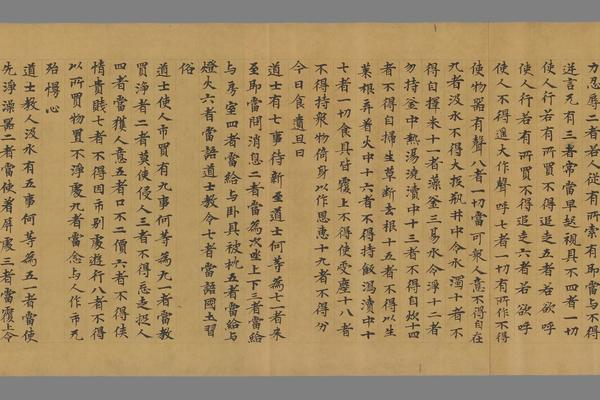 力忍辱二者若人從有所索有即當與不得
逆言无有三者常當早起視具不四者一切
使人行若有所買不得追走五者若欲呼
使人行若有所買不得追走六者若欲呼
使人不得進大作聲呼七者一切有所作不得
使物器有聲八者一切當可衆人意不得自在
九者汲水不得大投瓶井中令水濁十者不
得自擇米十一者藻釜三易水令淨十二者
勿持釜中熱湯澆瀆中十三者不得自炊十四
者不得自掃生草斷去根十五者不得以生
葉根弄著火中十六者不得持飯瀉瀆中十
七者一切食具皆覆上不得使受塵十八者
不得持衆物倚身以作恩惠十九者不得分
今日食遺旦日
道士有七事待新至道士何等為七一者來
至即當問消息二者當為次座上下三者當給
与房室四者當給与卧具被枕五者當給与
燈火六者當語道士教令七者當語國土習
俗
道士使人市買有九事何等為九一者當教
買淨者二者莫使侵人三者不得走挺人
四者當穫人意五者口不二價六者不得俠
情貴賤七者不得因市別處遊行八者不得
以所買物置不淨處九者當念与人作市无
殆慢心
道士教人汲水有五事何等為五一者當使
先淨澡器二者當使著屏處三者當覆上令